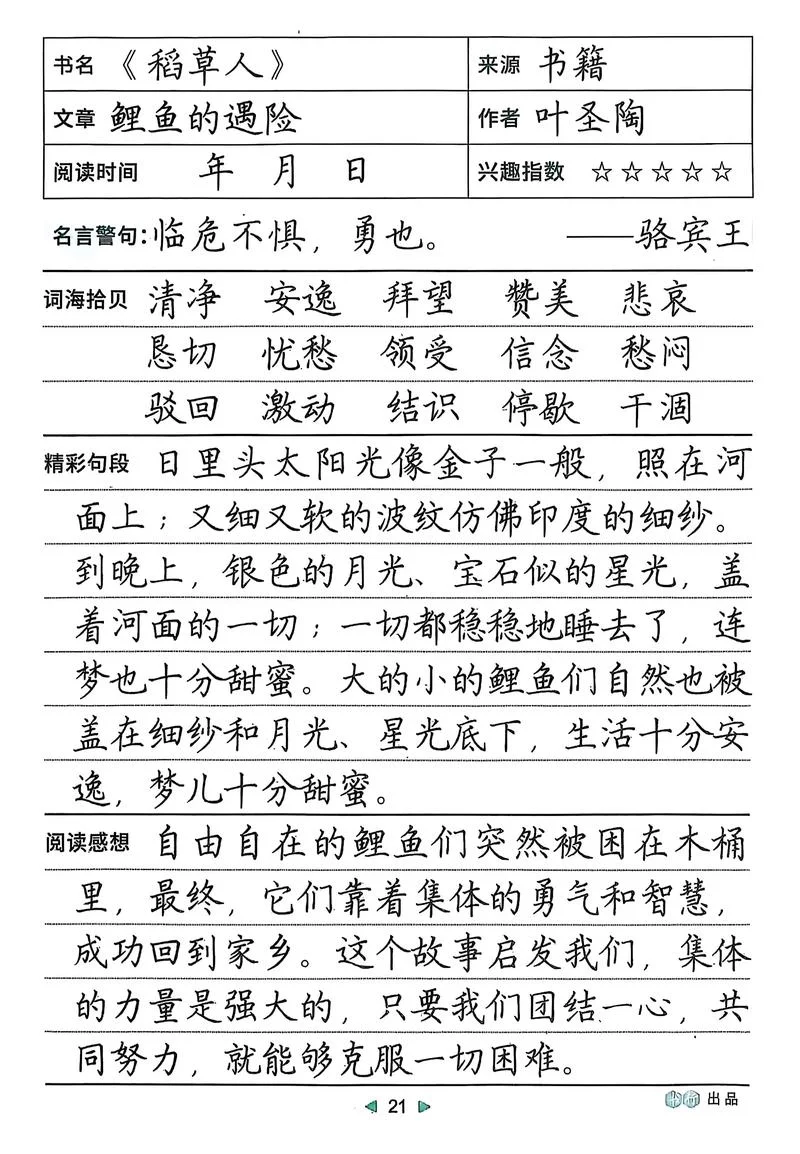 书名 《稻草人》 来源 书籍
文章 鲤鱼的遇险 作者 叶圣陶
阅读时间 年 月 日 兴趣指数 ☆☆☆☆☆
名言警句：临危不惧，勇也。 ——骆宾王
词海拾贝 清净 安逸 拜望 赞美 悲哀
恳切 忧愁 领受 信念 愁闷
驳回 激动 结识 停歇 干涸
精彩句段 日里头太阳光像金子一般，照在河
面上；又细又软的波纹仿佛印度的细纱。
到晚上，银色的月光、宝石似的星光，盖
着河面的一切；一切都稳稳地睡去了，连
梦也十分甜蜜。大的小的鲤鱼们自然也被
盖在细纱和月光、星光底下，生活十分安
逸，梦儿十分甜蜜。
阅读感想 自由自在的鲤鱼们突然被困在木桶
里，最终，它们靠着集体的勇气和智慧，
成功回到家乡。这个故事启发我们，集体
的力量是强大的，只要我们团结一心，共
同努力，就能够克服一切困难。
21
出品